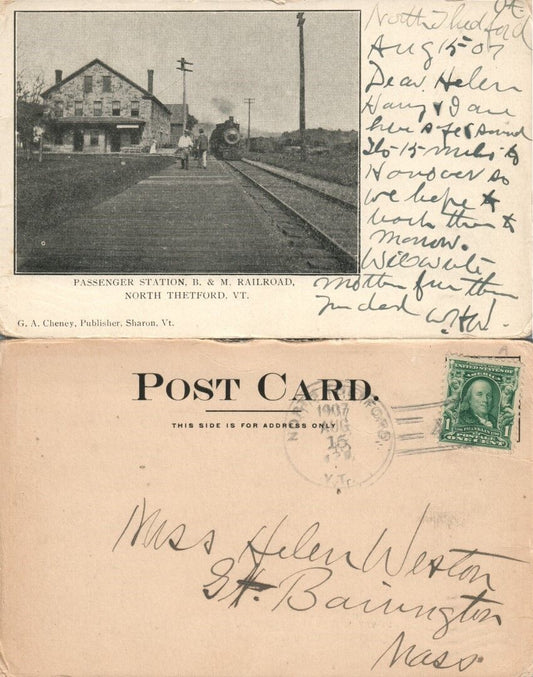 Vt.
North Thedford
Aug 15-07
Dear Helen
Harry & I are
here
15 miles to
Hanover so
we hope to
reach there to
morrow.
Will write
mother further
W.H.W.
PASSENGER STATION, B. & M. RAILROAD,
NORTH THETFORD, VT.
G. A. Cheney, Publisher, Sharon, Vt.
POST CARD.
THIS SIDE IS FOR ADDRESS ONLY
NORTH THETFORD,
1907
AUG
15
VT.
UNITED STATES OF
AMERICA
FRANKLIN
POSTAGE
1 ONE CENT 1
Miss Helen Weston
Gt. Barrington
Mass.